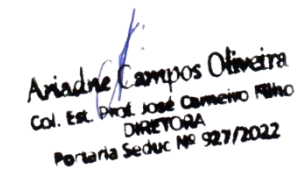 Ariadne Campos Oliveira
Col. Est. Prof. José Carneiro Filho
DIRETORA
Portaria Seduc Nº 927/2022